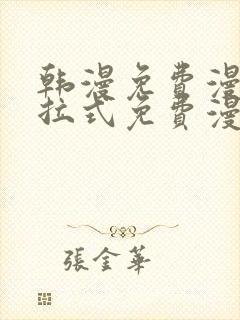 韩漫免费漫
拉式免费漫
張金華